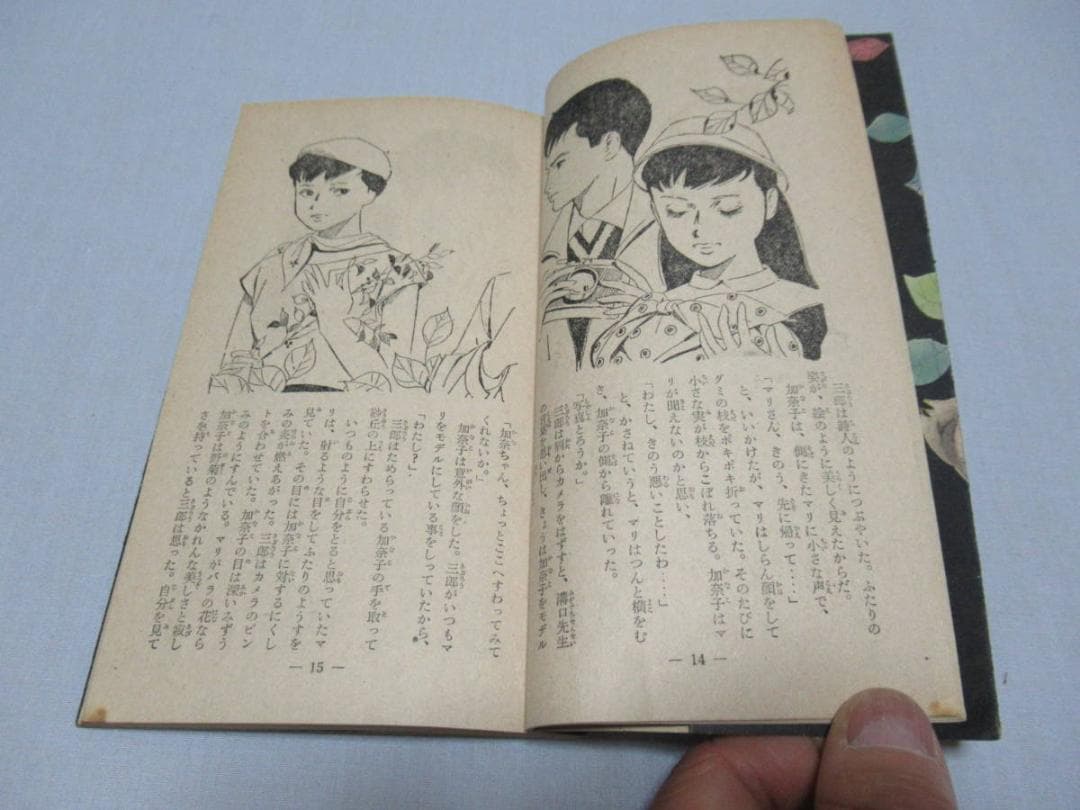 三郎は詩人のようにつぶやいた。ふたりの
姿が、絵のように美しく見えたからだ。
加奈子は、側にきたマリに小さな声で、
「マリさん、きのう、先に帰って‥‥」
と、いいかけたが、マリはしらん顔をして
グミの枝をポキポキ折っていた。そのたびに
小さな実が枝からこぼれ落ちる。加奈子はマ
リが聞えないのかと思い、
「わたし、きのう悪いことしたわ‥‥」
と、かさねていうと、マリはつんと横をむ
き、加奈子の側から離れていった。
「写真とろうか。」
三郎は肩からカメラをはずすと、溝口先生
の言葉を思い出し、きょうは加奈子をモデル
— 14 —
「加奈ちゃん、ちょっとここへすわってみて
くれないか。」
加奈子は意外な顔をした。三郎がいつもマ
リをモデルにしている事をしっていたから、
「わたし？」
三郎はためらっている加奈子の手を取って
砂丘の上にすわらせた。
いつものように自分をとると思っていたマ
リは、射るような目をしてふたりのようすを
見ていた。その目には加奈子に対するにくし
みの炎が燃えあがった。三郎はカメラのピン
トを合わせていた。加奈子の目は深いみずう
みのようにすんでいる。マリがバラの花なら
加奈子は野菊のようなかれんな美しさと寂し
さを持っていると三郎は思った。自分を見て
— 15 —